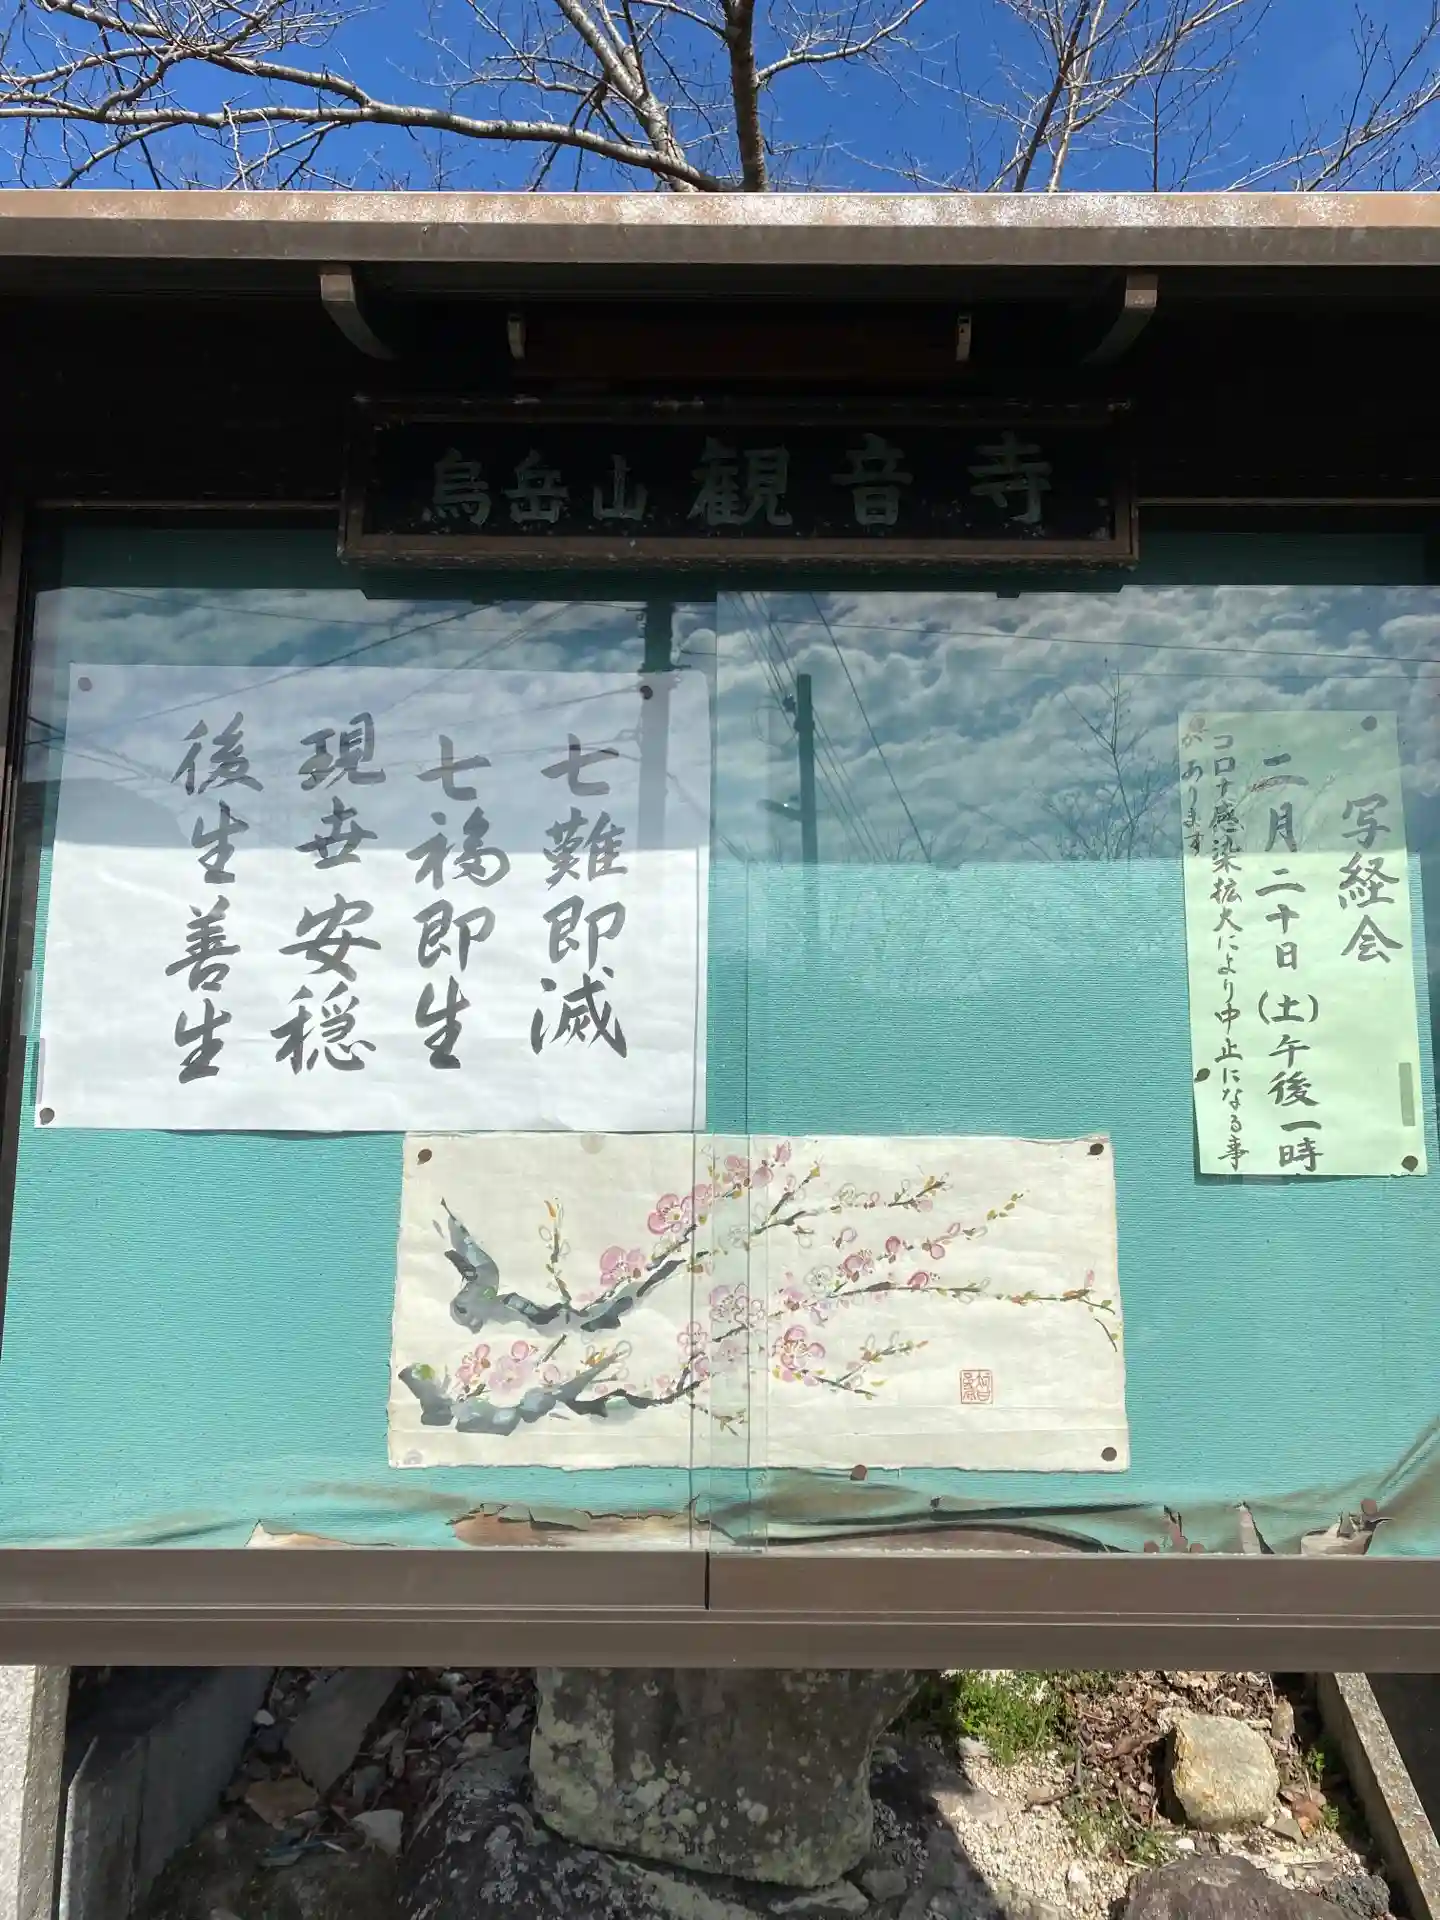 烏岳山 観音寺
写経会
二月二十日(土)午後一時
コロナ感染拡大により中止になる事
があります
七難即滅
七福即生
現世安穏
後生善生